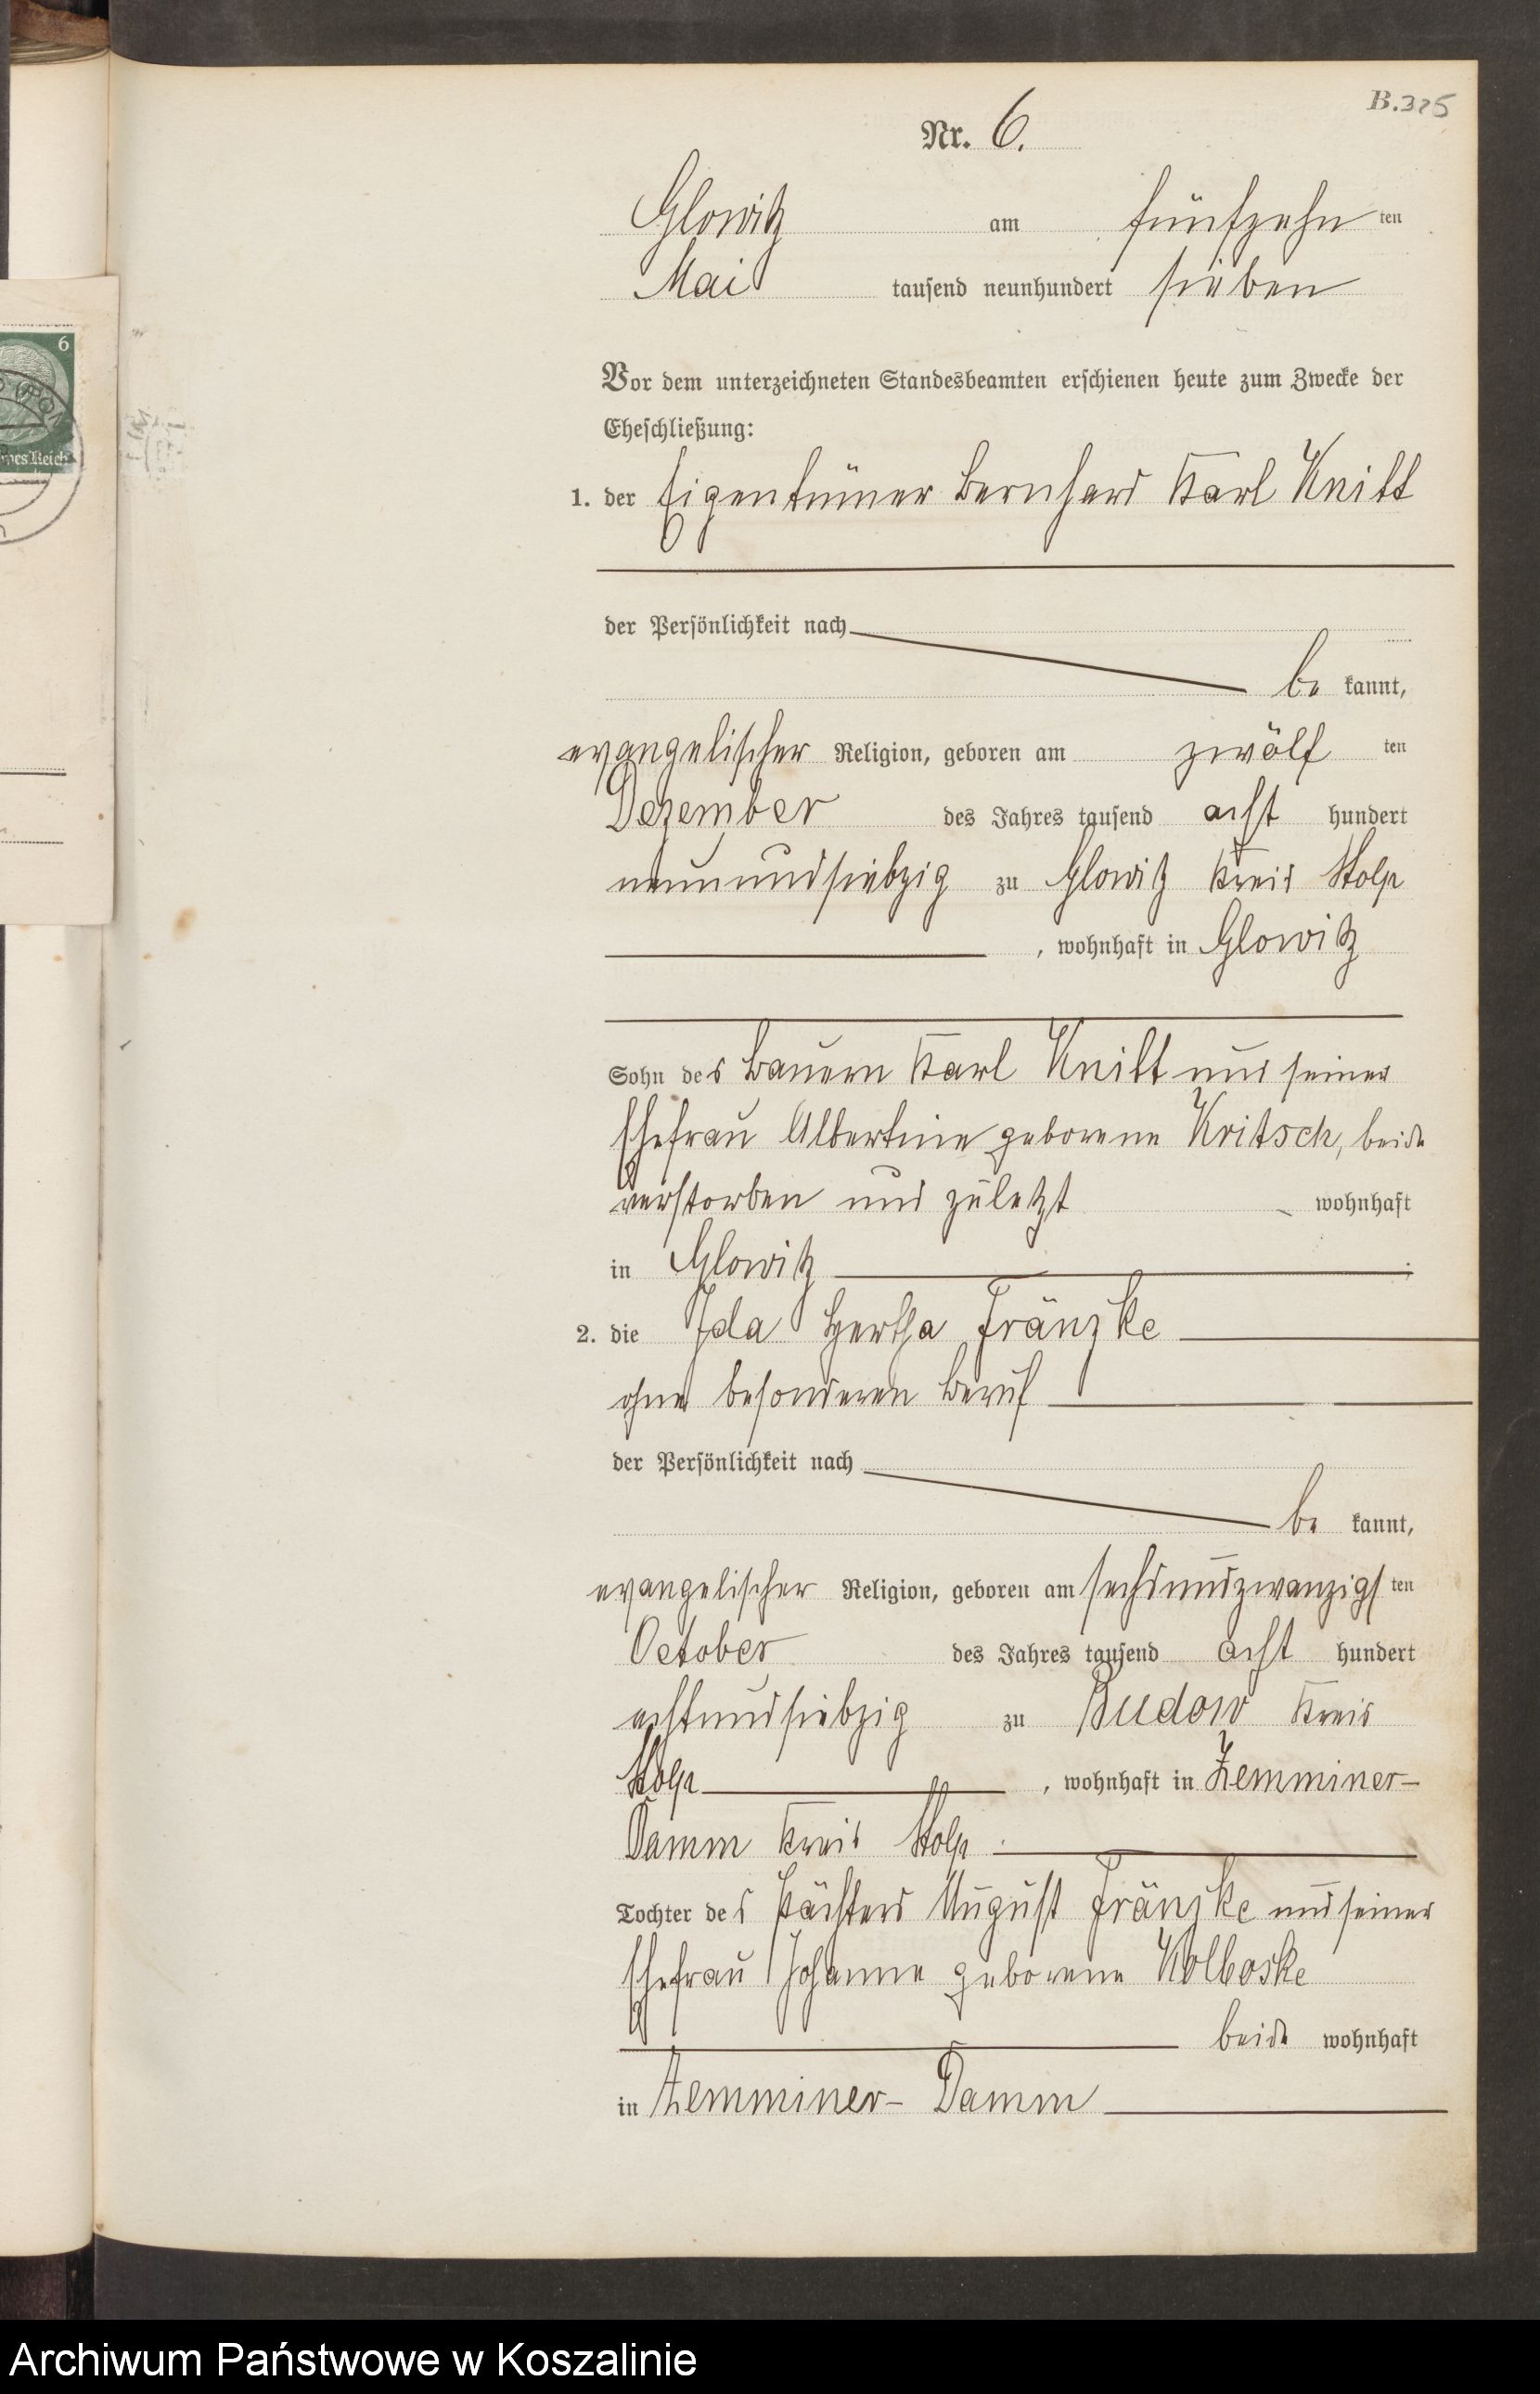 B.325
Nr. 6.
Glowitz am fünfzehnten
Mai tausend neunhundert sieben
Vor dem unterzeichneten Standesbeamten erschienen heute zum Zwecke der
Eheschließung:
1. der Eigentümer Bernhard Karl Knitt
der Persönlichkeit nach
be kannt,
evangelischer Religion, geboren am zwölf ten
Dezember des Jahres tausend acht hundert
neunundsiebzig zu Glowitz Kreis Stolp
, wohnhaft in Glowitz
Sohn des Bauern Karl Knitt und seiner
Ehefrau Albertine geborene Kritsch, beide
verstorben und zuletzt wohnhaft
in Glowitz
2. die Ida Hertha Fränzke
ohne besonderen Beruf
der Persönlichkeit nach
be kannt,
evangelischer Religion, geboren am sechsundzwanzigsten
October des Jahres tausend acht hundert
achtundsiebzig zu Budow Kreis
Stolp, wohnhaft in Zemminer-
Damm Kreis Stolp.
Tochter des Pächters August Fränzke und seiner
Ehefrau Johanne geborene Kolboske
beide wohnhaft
in Zemminer-Damm
6
Archiwum Państwowe w Koszalinie